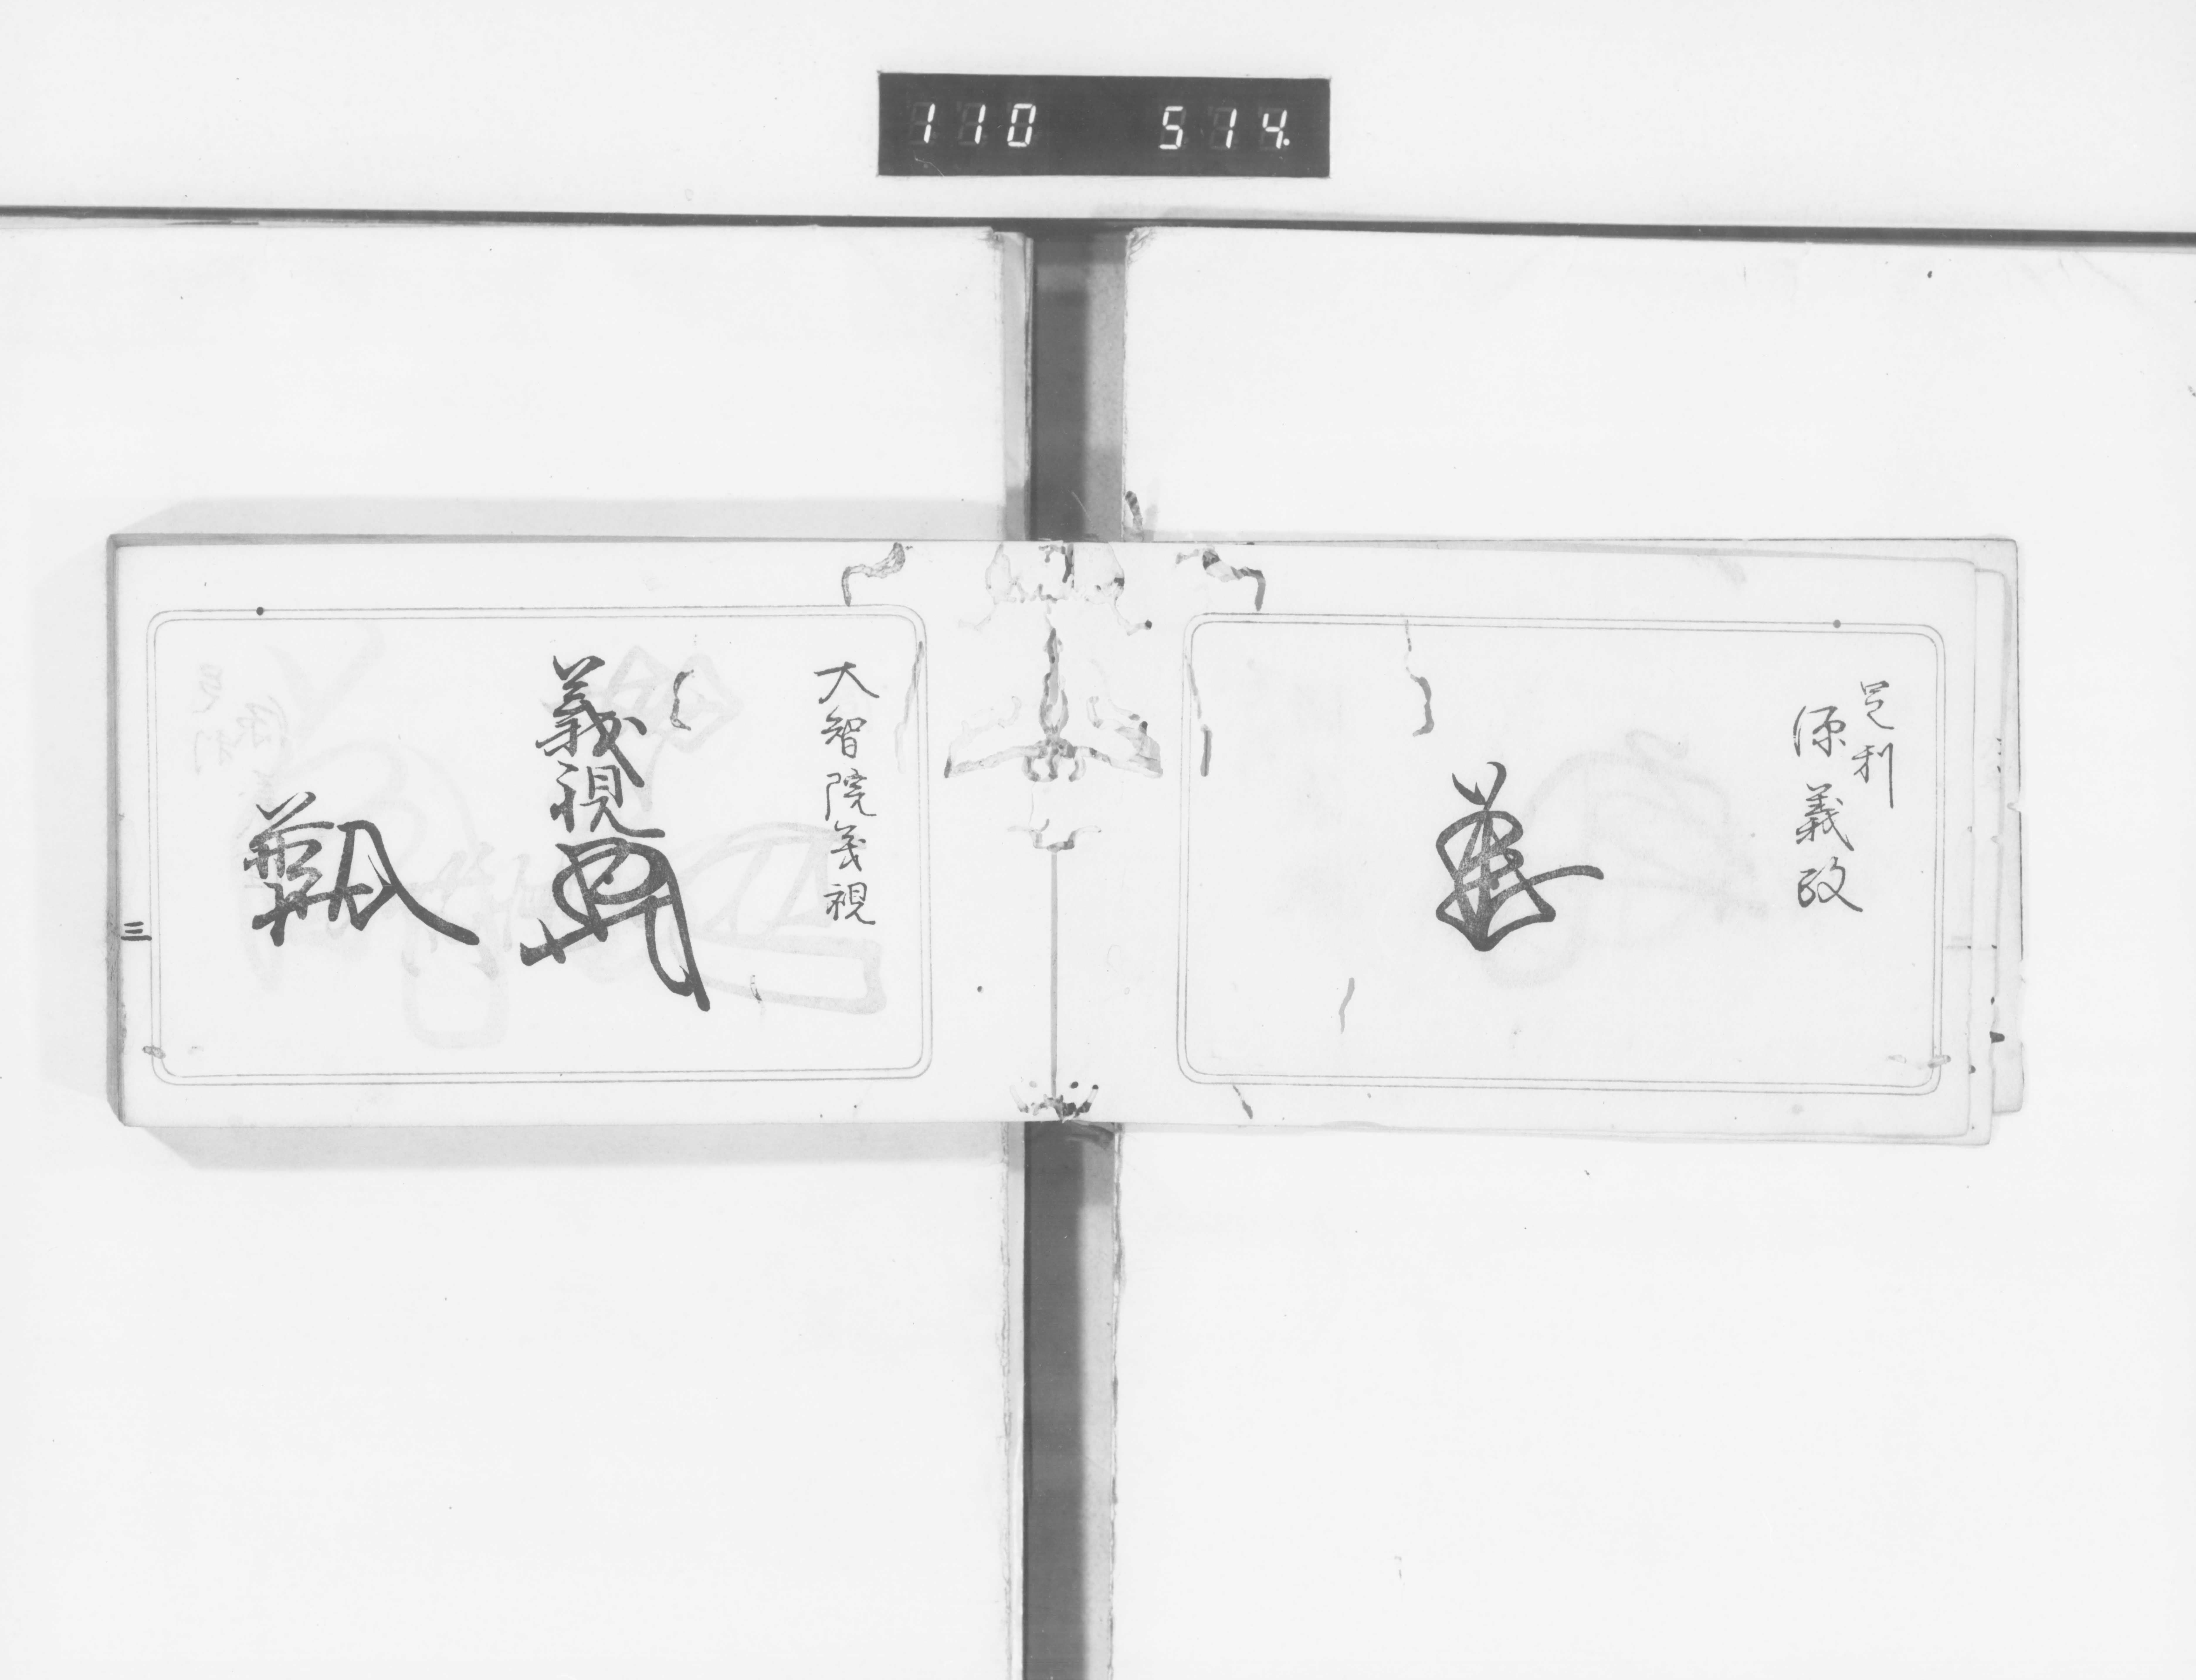 110 514.
足利
源義政
大智院義視
義視
三